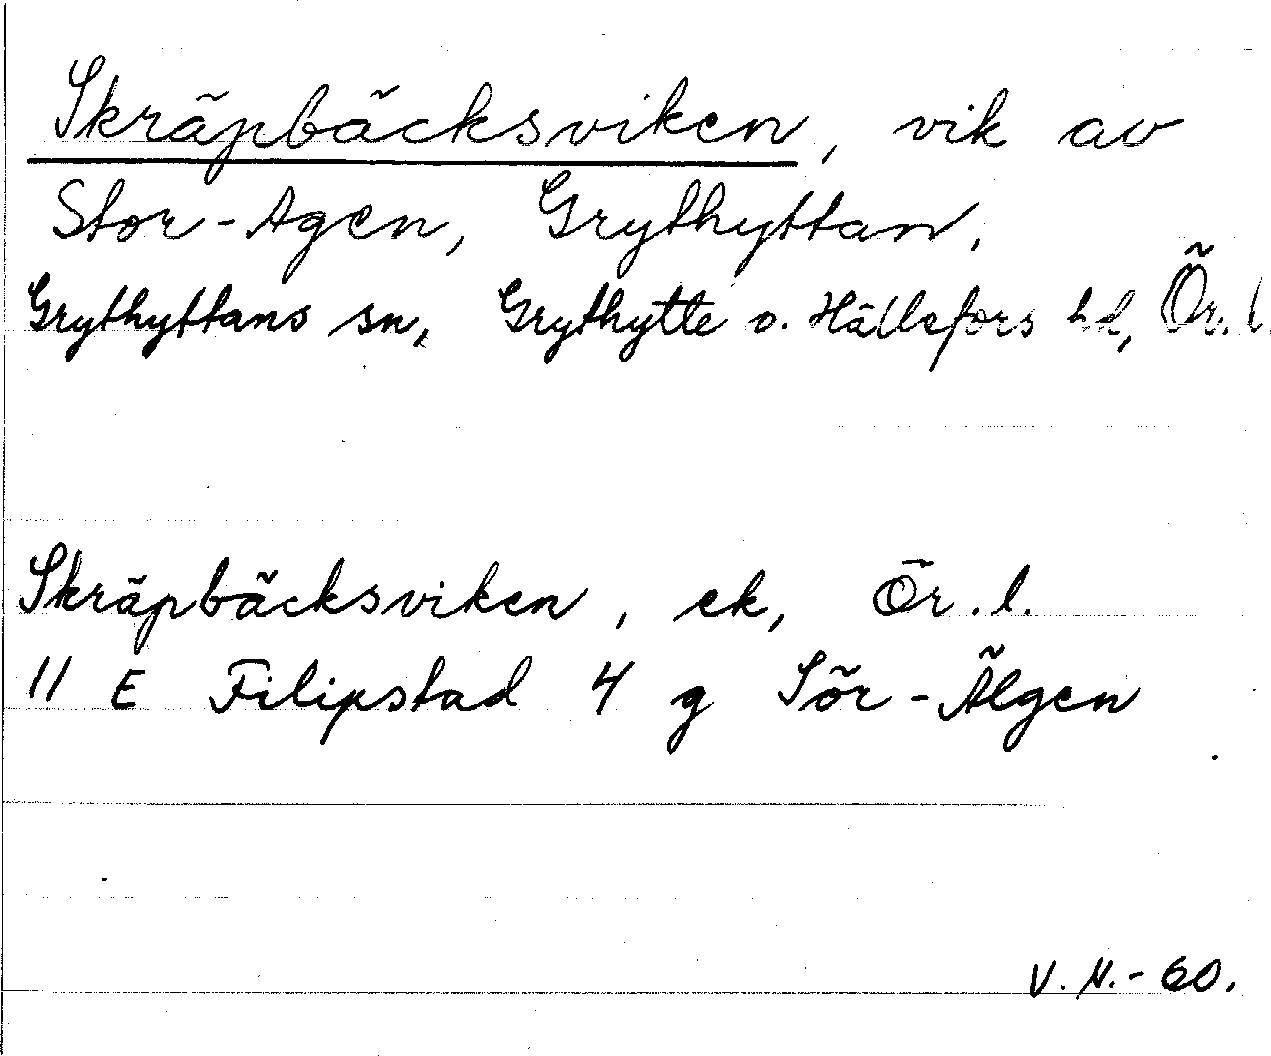 Skräpbäcksviken, vik av
Stor-Agen, Grythyttan.
Grythyttans sn, Grythytte o. Hällefors hd, Ör. l
Skräpbäcksviken, ek, Ör. l.
11 E Filipstad 4 g Sör-Älgen
V. N.-60.